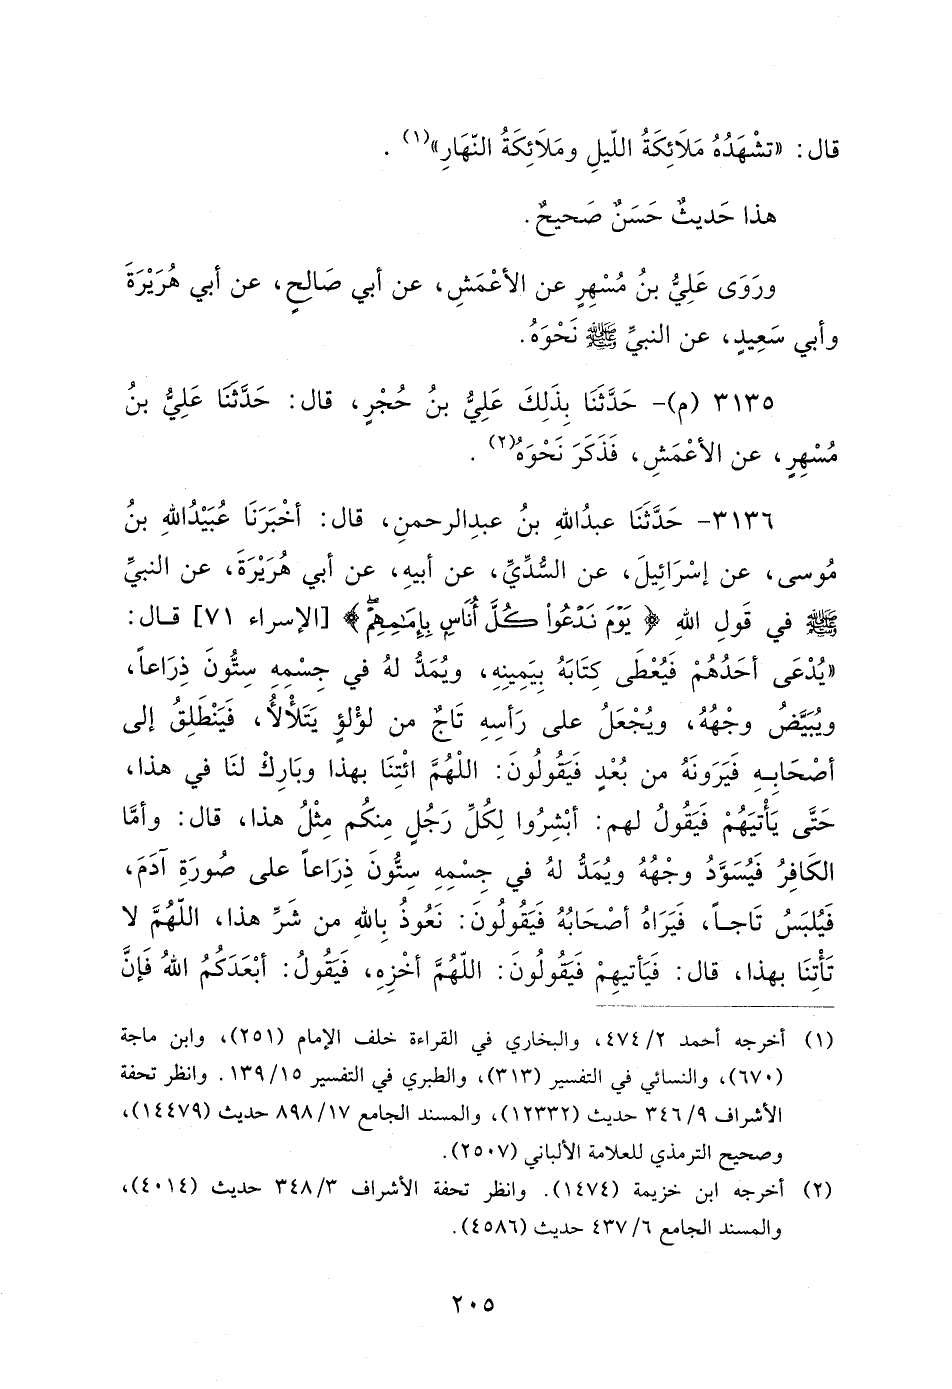 قال: «تشْهَدُهُ مَلَائِكَةُ اللّيلِ ومَلَائِكَةُ النّهَارِ»(١).
هذا حَديثٌ حَسَنٌ صَحيحٌ.
ورَوَى عَلِيُّ بنُ مُسْهِرٍ عن الأعْمَشِ، عن أبي صَالِحٍ، عن أبي هُرَيْرَةَ
وأبي سَعِيدٍ، عن النبيِّ ﷺ نَحْوَهُ.
٣١٣٥ (م)- حَدَّثَنَا بِذَلِكَ عَلِيُّ بنُ حُجْرٍ، قال: حَدَّثَنَا عَلِيُّ بنُ
مُسْهِرٍ، عن الأعْمَشِ، فَذَكَرَ نَحْوَهُ(٢).
٣١٣٦- حَدَّثَنَا عبدُالله بنُ عبدالرحمنِ، قال: أخْبَرَنَا عُبَيْدُاللهِ بنُ
مُوسى، عن إسْرَائِيلَ، عن السُّدِّيِّ، عن أبيهِ، عن أبي هُرَيْرَةَ، عن النبيِّ
ﷺ في قَولِ اللهِ ﴿يَوْمَ نَدْعُواْ كُلَّ أُنَاسٍ بِإِمَامِهِمْ﴾ [الإسراء ٧١] قال:
«يُدْعَى أحَدُهُمْ فَيُعْطَى كِتَابَهُ بِيَمِينِهِ، ويُمَدُّ لهُ في جِسْمِهِ سِتُّونَ ذِرَاعاً،
ويُبَيَّضُ وجْهُهُ، ويُجْعَلُ على رَأسِهِ تَاجٌ من لؤلؤٍ يَتَلَأْلأُ، فَيَنْطَلِقُ إلى
أصْحَابِهِ فَيَرَونَهُ من بُعْدٍ فَيَقُولُونَ: اللّهُمَّ ائْتِنَا بهذا وبَارِكْ لنَا في هذا،
حَتَّى يَأْتيَهُمْ فَيَقُولُ لهم: أبْشِرُوا لِكُلِّ رَجُلٍ مِنكُم مِثْلُ هذا، قال: وأمَّا
الكَافِرُ فَيُسَوَّدُ وجْهُهُ ويُمَدُّ لهُ في جِسْمِهِ سِتُّونَ ذِرَاعاً على صُورَةِ آدَمَ،
فَيُلبَسُ تَاجاً، فَيَرَاهُ أصْحَابُهُ فَيَقُولُونَ: نَعُوذُ بِاللهِ من شَرِّ هذا، اللّهُمَّ لا
تَأْتِنَا بهذا، قال: فَيَأتيهِمْ فَيَقُولُونَ: اللّهُمَّ أخْزِهِ، فَيَقُولُ: أبْعَدَكُمُ اللهُ فَإنَّ
(١) أخرجه أحمد ٢/ ٤٧٤، والبخاري في القراءة خلف الإمام (٢٥١)، وابن ماجة
(٦٧٠)، والنسائي في التفسير (٣١٣)، والطبري في التفسير ١٥/ ١٣٩. وانظر تحفة
الأشراف ٩/ ٣٤٦ حديث (١٢٣٣٢)، والمسند الجامع ١٧/ ٨٩٨ حديث (١٤٤٧٩)،
وصحيح الترمذي للعلامة الألباني (٢٥٠٧).
(٢) أخرجه ابن خزيمة (١٤٧٤). وانظر تحفة الأشراف ٣/ ٣٤٨ حديث (٤٠١٤)،
والمسند الجامع ٦/ ٤٣٧ حديث (٤٥٨٦).
٢٠٥